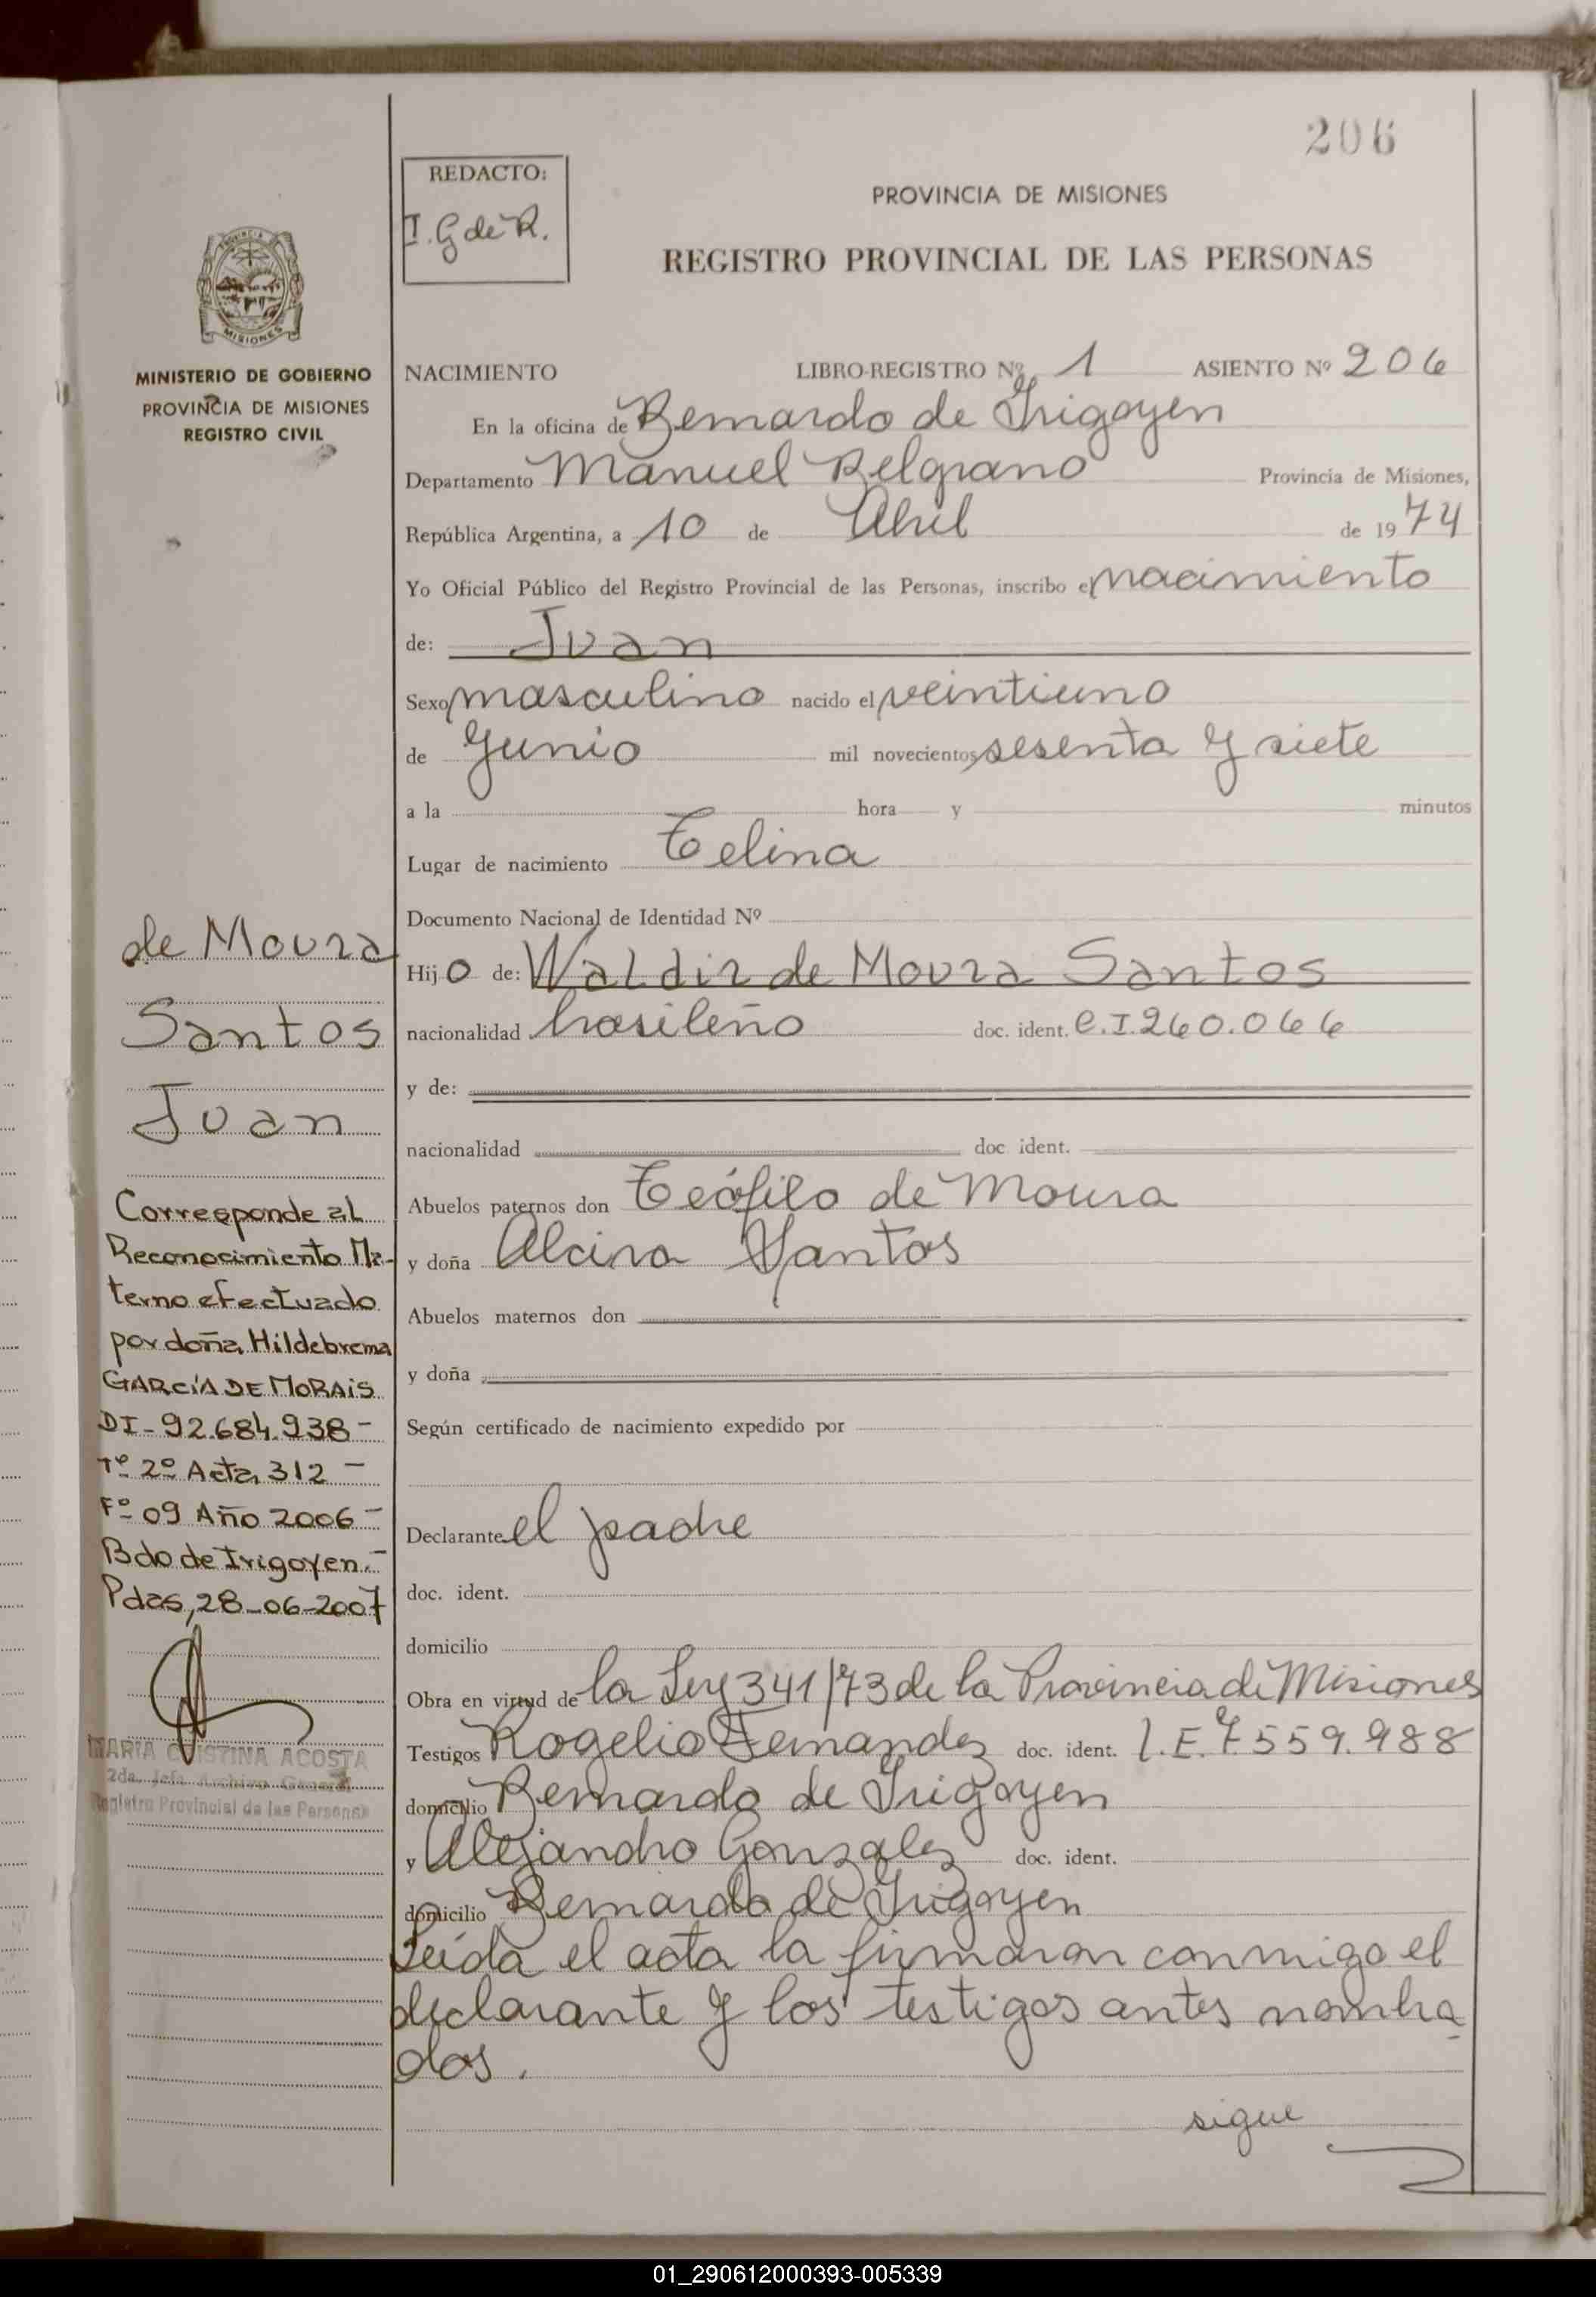 206
REDACTO:
I. G de R.
PROVINCIA DE MISIONES
REGISTRO PROVINCIAL DE LAS PERSONAS
MISIONES
MINISTERIO DE GOBIERNO
PROVINCIA DE MISIONES
REGISTRO CIVIL
NACIMIENTO LIBRO-REGISTRO Nº 1 ASIENTO Nº 206
En la oficina de Bernardo de Irigoyen
Departamento Manuel Belgrano Provincia de Misiones,
República Argentina, a 10 de Abril de 1974
Yo Oficial Público del Registro Provincial de las Personas, inscribo el nacimiento
de: Juan
Sexo masculino nacido el veintiuno
de Junio mil novecientos sesenta y siete
a la hora y minutos
Lugar de nacimiento Celina
Documento Nacional de Identidad Nº
Hijo de: Waldir de Moura Santos
nacionalidad brasileño doc. ident. C.I.260.066
y de:
nacionalidad doc ident.
Abuelos paternos don Teófilo de Moura
y doña Alcira Santos
Abuelos maternos don
y doña
Según certificado de nacimiento expedido por
Declarante el padre
doc. ident.
domicilio
Obra en virtud de la Ley 341/73 de la Provincia de Misiones
Testigos Rogelio Fernandez doc. ident. L.E.7.559.988
domicilio Bernardo de Irigoyen
y Alejandro Gonzalez doc. ident.
domicilio Bernardo de Irigoyen
Leída el acta la firmaron conmigo el
declarante y los testigos antes nombra
dos.
sigue
de Moura
Santos
Juan
Corresponde al
Reconocimiento Ma-
terno efectuado
por doña Hildebrema
GARCÍA DE MORAIS
DI-92.684.938-
Tº 2º Acta 312-
Fº 09 Año 2006-
Bdo de Irigoyen.-
Pdas, 28-06-2007
MARIA CRISTINA ACOSTA
2da. Jefa Archivo General
Registro Provincial de las Personas
01_290612000393-005339